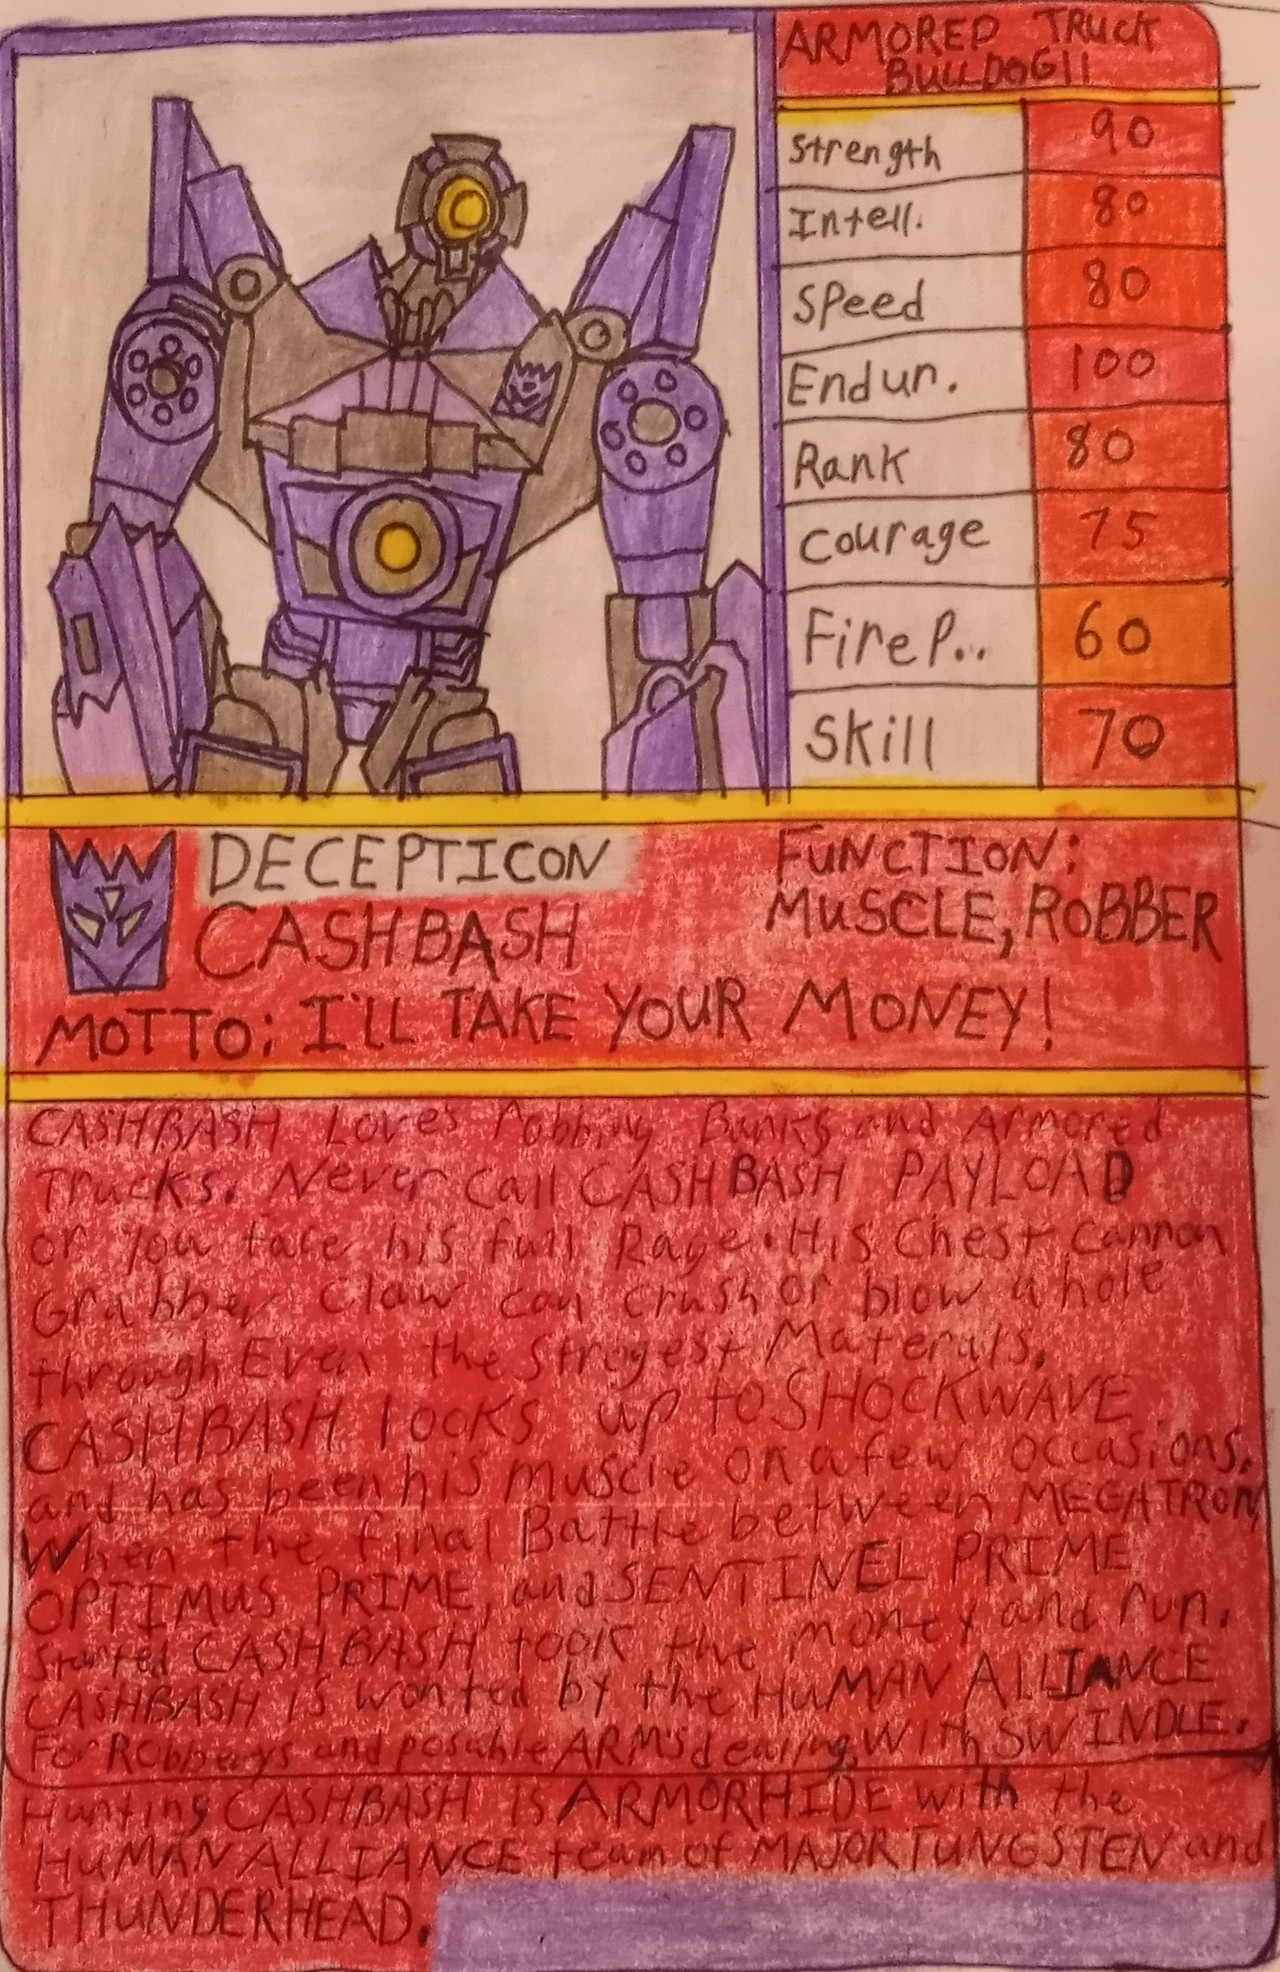 ARMORED TRUCK
BULLDOG II
Strength 90
Intell. 80
Speed 80
Endur. 100
Rank 80
Courage 75
Fire P... 60
Skill 70
DECEPTICON
CASHBASH
FUNCTION:
MUSCLE, ROBBER
MOTTO: I'LL TAKE YOUR MONEY!
CASHBASH Loves Robbing Banks and Armored
Trucks. Never Call CASHBASH PAYLOAD
or you face his full Rage. His Chest Cannon
Grabber Claw can crush or blow a hole
through Even the Strogest Materials.
CASHBASH looks up to SHOCKWAVE
and has been his muscle on a few occasions.
When the final Battle between MEGATRON,
OPTIMUS PRIME, and SENTINEL PRIME
Started CASHBASH took the money and run.
CASHBASH is wonted by the HUMAN ALLIANCE
For Robberys and posable ARMS dealing, with SWINDLE.
Hunting CASHBASH is ARMORHIDE with the
HUMAN ALLIANCE team of MAJOR TUNGSTEN and
THUNDERHEAD.